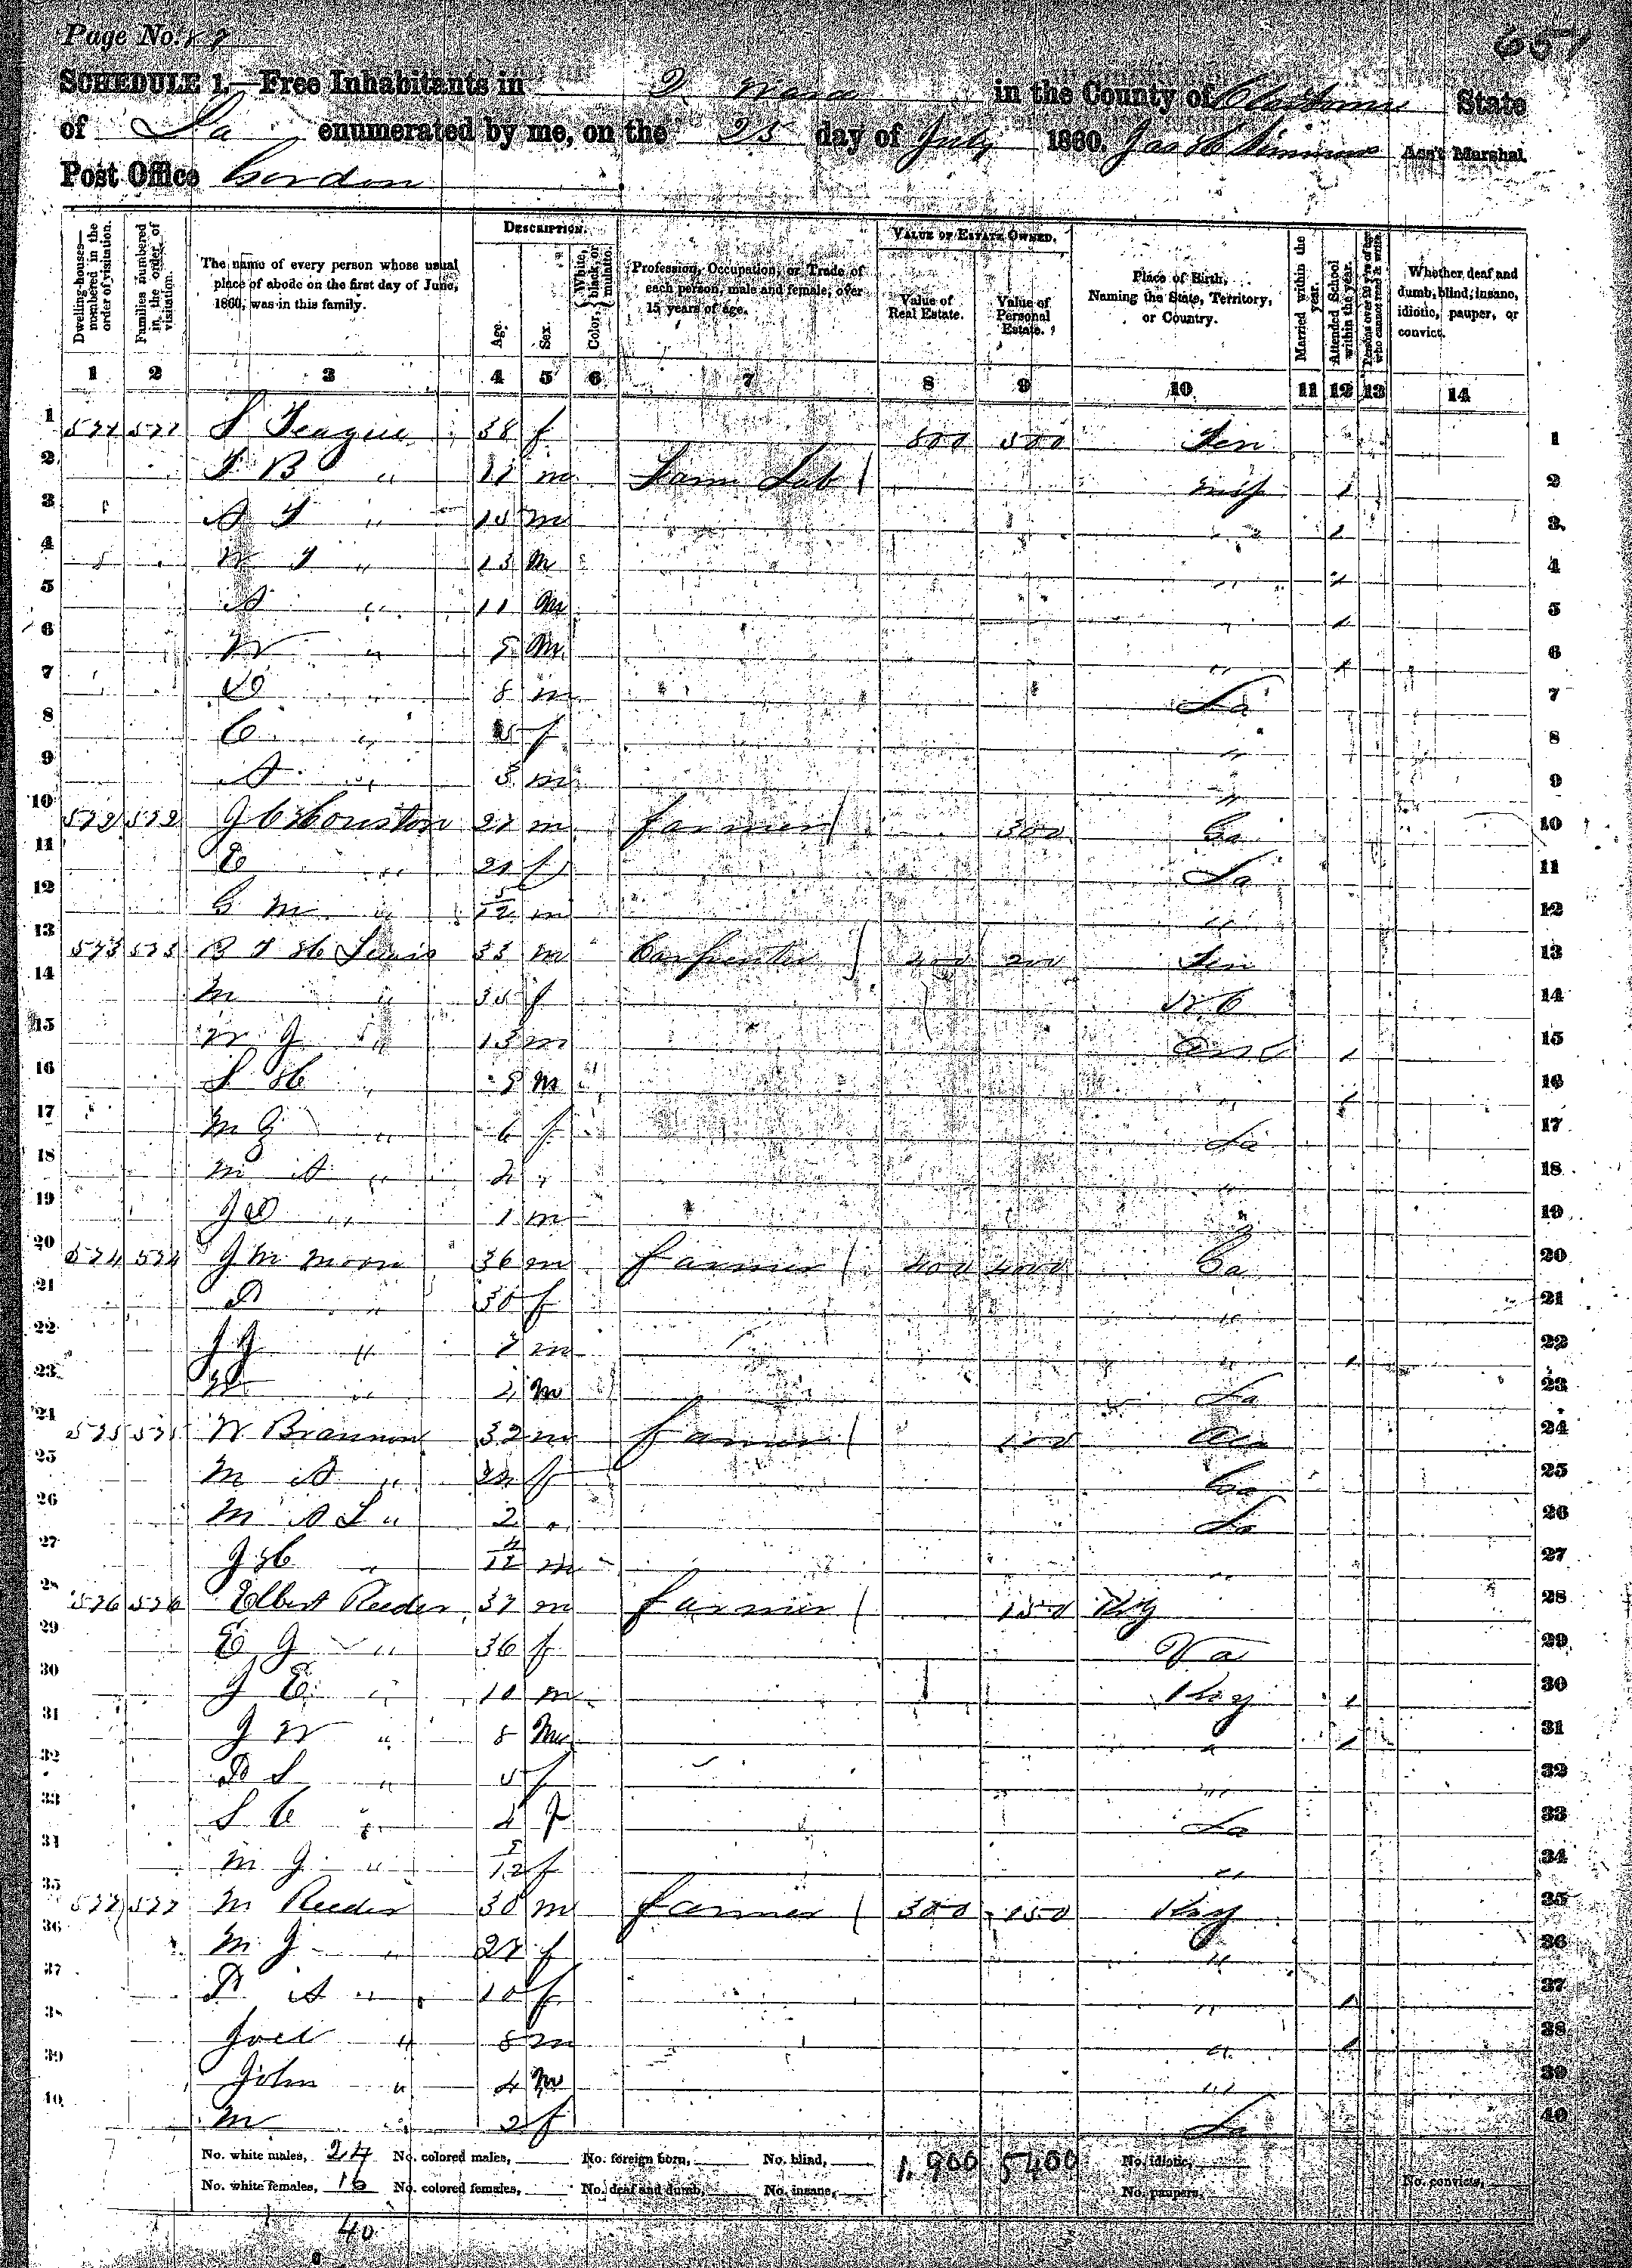 Page No.
SCHEDULE 1.—Free Inhabitants in 2 Ward in the County of Claiborne State
of La enumerated by me, on the 25 day of July 1860. Jas H Simmons Ass't Marshal.
Post Office Gordon
Dwelling-houses—numbered in the order of visitation.
Families numbered in the order of visitation.
The name of every person whose usual place of abode on the first day of June, 1860, was in this family.
DESCRIPTION.
Age.
Sex.
Color, { White, black, or mulatto.
Profession, Occupation, or Trade of each person, male and female, over 15 years of age.
VALUE OF ESTATE OWNED.
Value of Real Estate.
Value of Personal Estate.
Place of Birth, Naming the State, Territory, or Country.
Married within the year.
Attended School within the year.
Persons over 20 y'rs of age who cannot read & write.
Whether deaf and dumb, blind, insane, idiotic, pauper, or convict.
1 2 3 4 5 6 7 8 9 10 11 12 13 14
1 571 571 S Teague 38 f 800 500 Ten 1
2 T B " 17 m Farm Lab Miss / 2
3 A T " 15 m " / 3
4 W T " 13 m " / 4
5 A " 11 m " / 5
6 W " 9 m " / 6
7 D " 8 m La 7
8 C " 5 f " 8
9 A " 3 m " 9
10 572 572 J C Houston 27 m Farmer 300 Ga 10
11 E " 21 f La 11
12 G M " 5/12 m " 12
13 573 573 B T H Lewis 33 m Carpenter 400 200 Ten 13
14 M " 35 f N C 14
15 W J " 13 m Ark / 15
16 S H " 9 m " / 16
17 M J " 6 f La 17
18 M A " 4 " " 18
19 J D " 1 m " 19
20 574 574 J M Moon 36 m Farmer 400 4000 Ga 20
21 D " 30 f " 21
22 J J " 7 m " / 22
23 " 4 m La 23
24 575 575 W Brannon 32 m Farmer 100 Ala 24
25 M A " 22 f Ga 25
26 M A L " 2 " La 26
27 J H " 4/12 m " 27
28 576 576 Elbert Reeder 37 m Farmer 150 Ky 28
29 E J " 36 f Va 29
30 J E " 10 m Ky / 30
31 J W " 8 m " / 31
32 D S " 5 f " 32
33 S C " 4 f La 33
34 M J " 9/12 f " 34
35 577 577 M Reeder 30 m Farmer 300 150 Ky 35
36 M J " 27 f " 36
37 D A " 10 f " / 37
38 Joel " 8 m " / 38
39 John " 4 m " 39
40 M " 2 f La 40
No. white males, 24 No. colored males, No. foreign born, No. blind, 1,900 5400 No. idiotic,
No. white females, 16 No. colored females, No. deaf and dumb, No. insane, No. paupers, No. convicts,
40